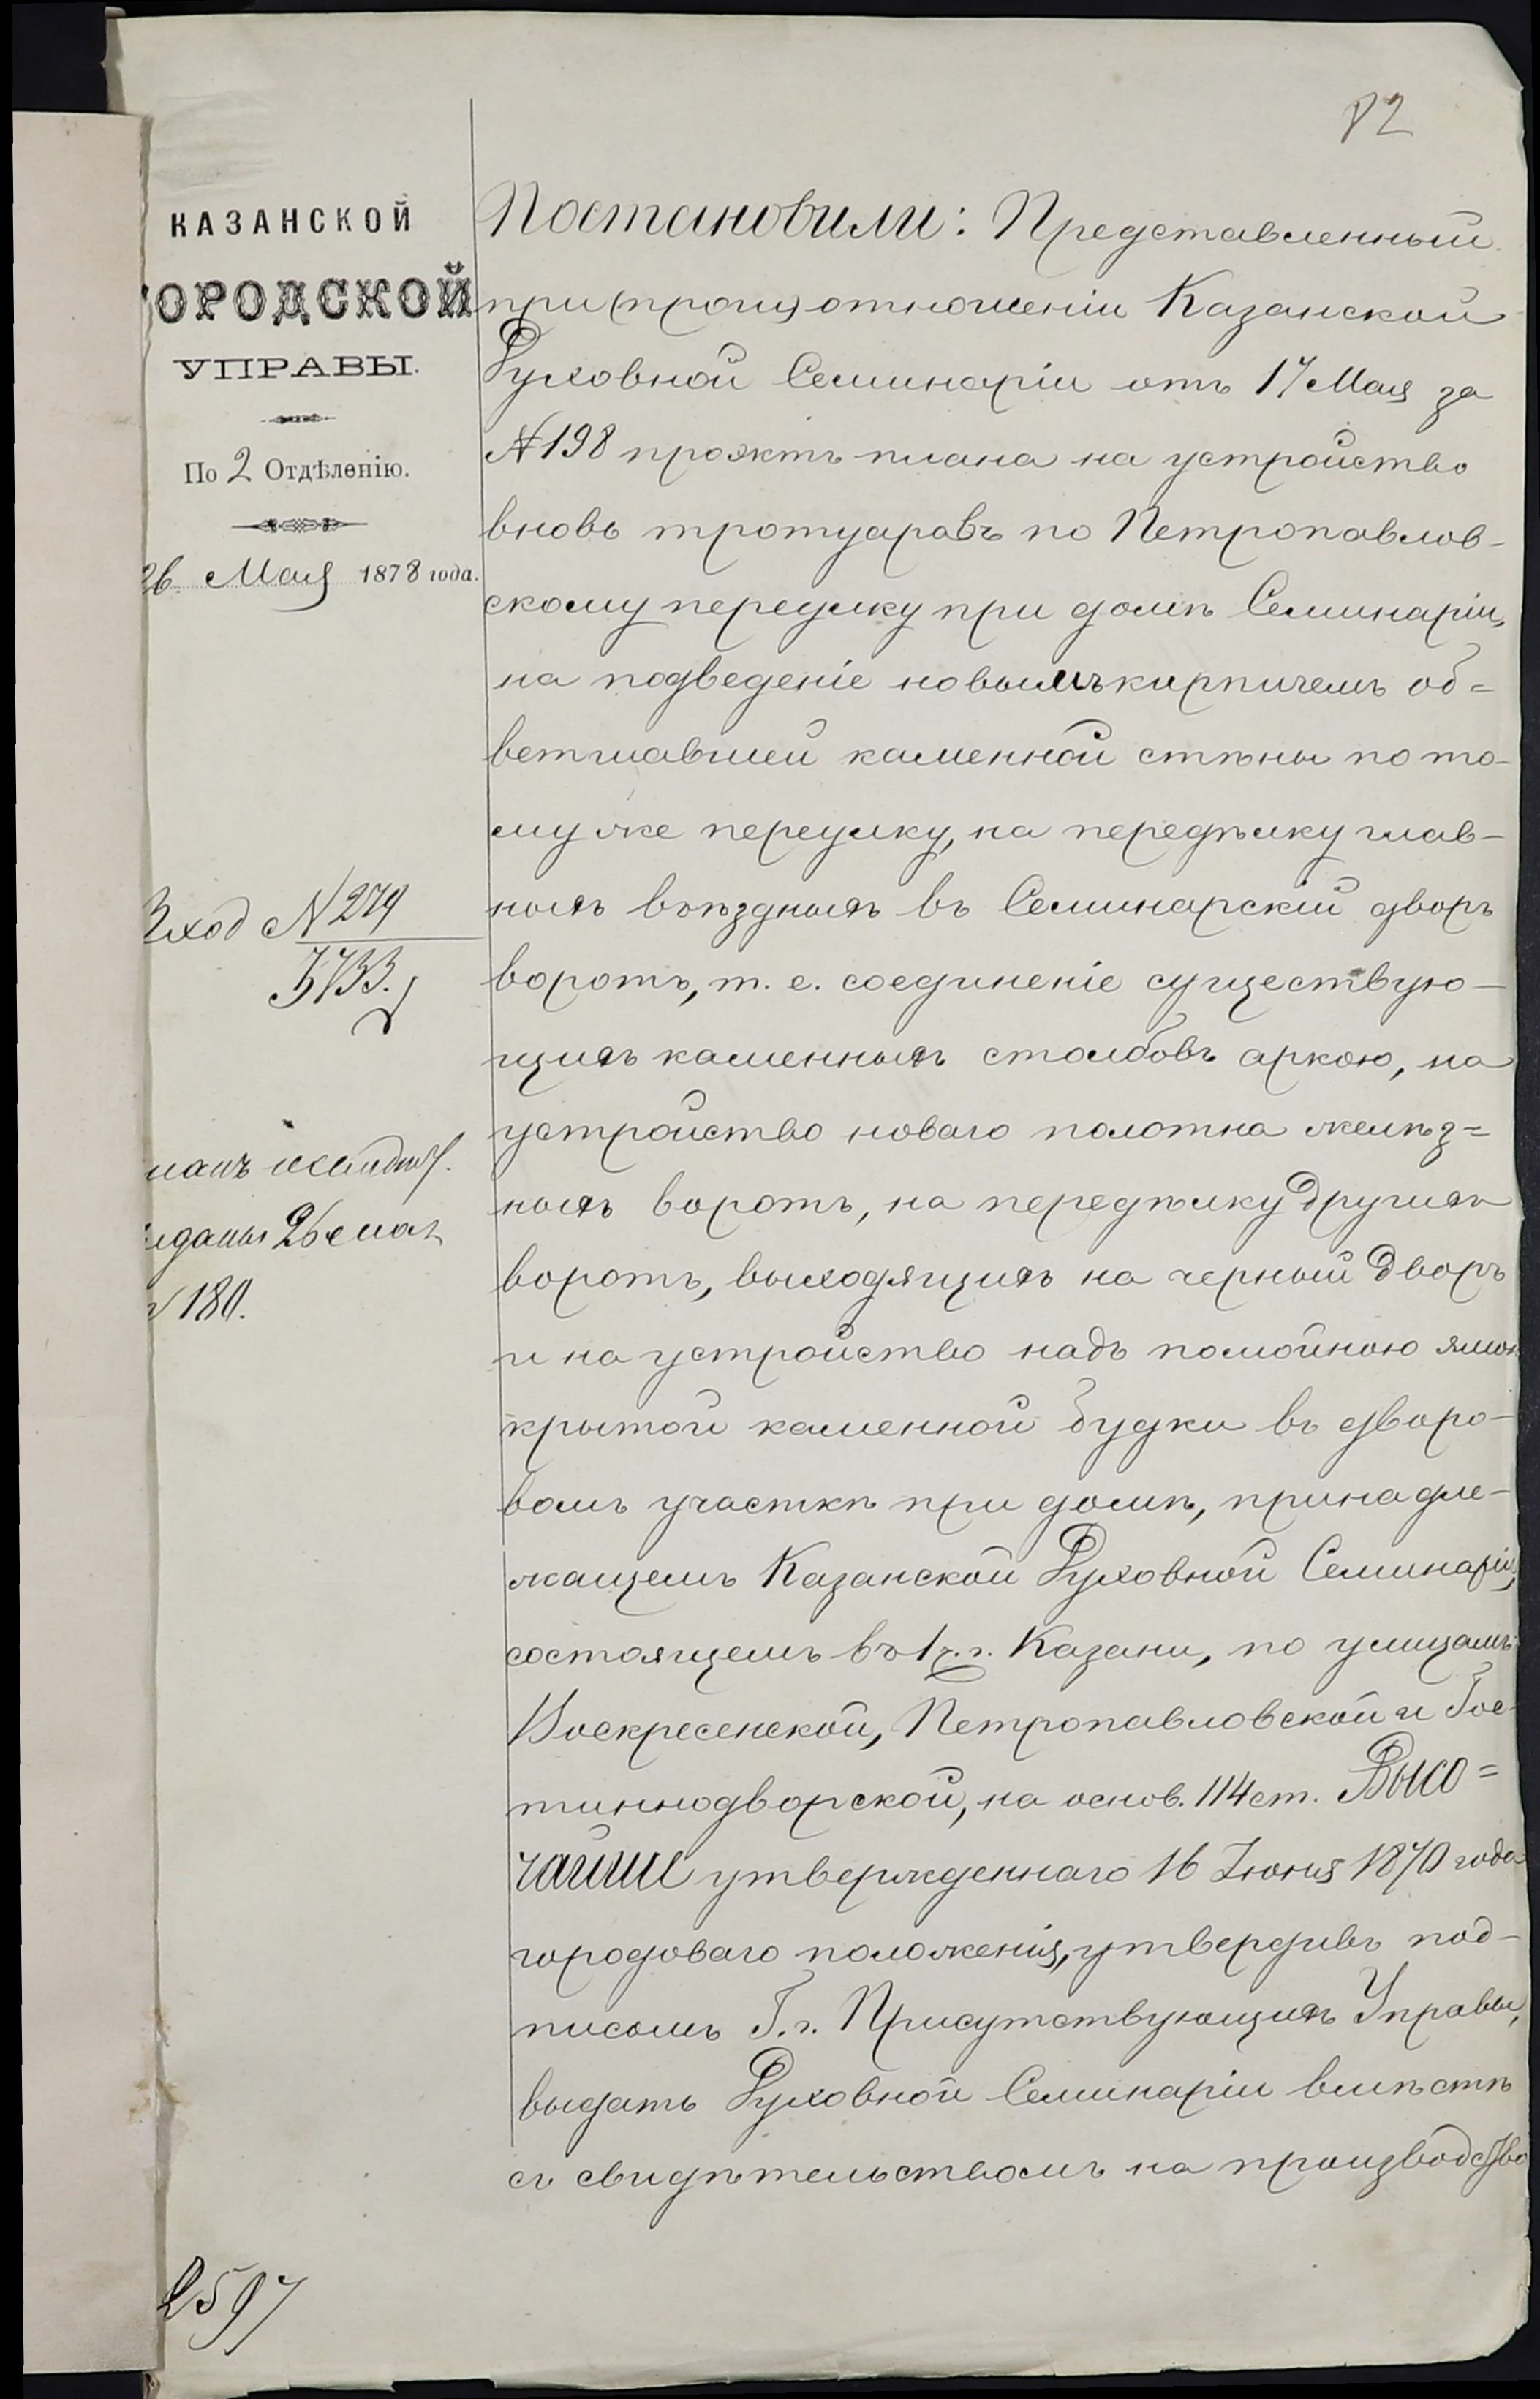 82
КАЗАНСКОЙ
ГОРОДСКОЙ
УПРАВЫ.
По 2 Отдѣленію.
26 Мая 1878 года.
Вход № 279
3733.
180.
2597
Постановили: Представленный
при отношеніи Казанской
Духовной Семинаріи отъ 17 Мая за
№ 198 проэктъ плана на устройство
вновь тротуаровъ по Петропавлов-
скому переулку при домѣ Семинаріи,
на подведеніе новымъ кирпичемъ об=
ветшавшей каменной стѣны по то-
му же переулку, на передѣлку глав-
ныхъ въѣздныхъ въ Семинарскій дворъ
воротъ, т. е. соединеніе существую-
щихъ каменныхъ столбовъ аркою, на
устройство новаго полотна желѣз=
ныхъ воротъ, на передѣлку другихъ
воротъ, выходящихъ на черный дворъ
и на устройство надъ помойною ямою
крытой каменной будки въ дворо-
вомъ участкѣ при домѣ, принадле-
жащемъ Казанской Духовной Семинаріи,
состоящемъ въ 1 ч. г. Казани, по улицамъ
Воскресенской, Петропавловской и Гос-
тиннодворской, на основ. 114 ст. Высо=
чайше утвержденнаго 16 Іюня 1870 года
городоваго положенія, утвердивъ под-
писомъ Г.г. Присутствующихъ Управы,
выдать Духовной Семинаріи вмѣстѣ
съ свидѣтельствомъ на производство